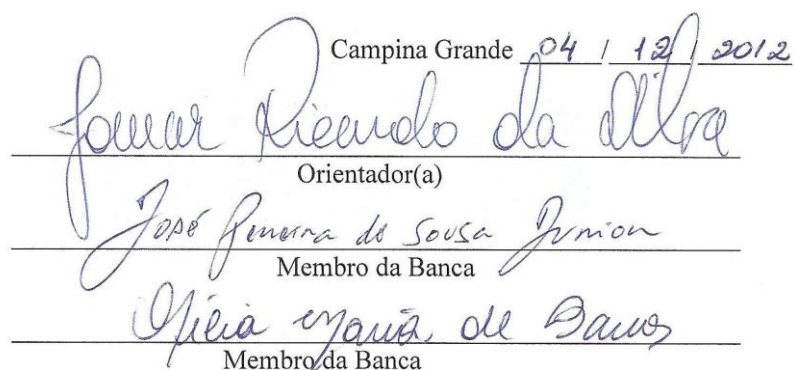 Campina Grande 04 / 12 / 2012
Jomar Ricardo da Silva
Orientador(a)
José Pereira de Sousa Junior
Membro da Banca
Maria de Barros
Membro da Banca